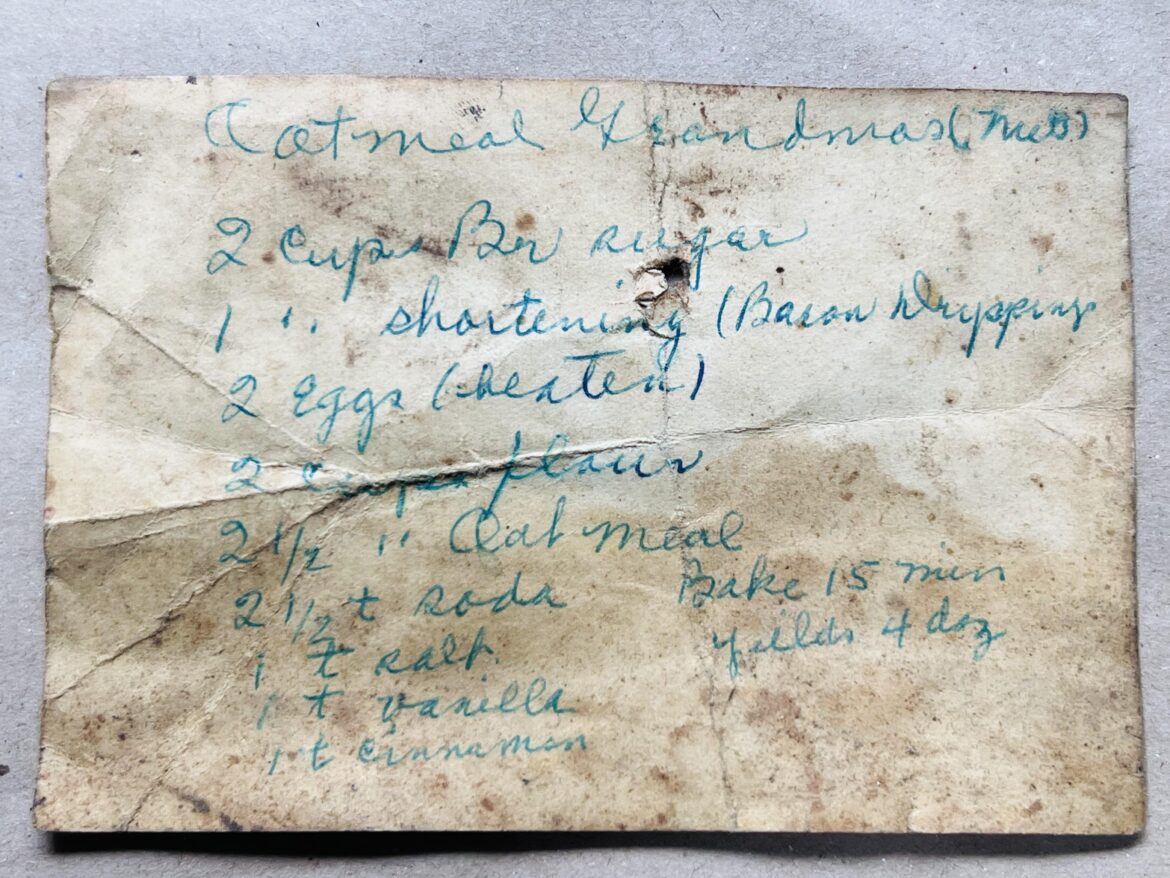 Oatmeal Grandmas (
2 cups Br sugar
1 " shortening (Bacon Drippings
2 Eggs (beaten)
2 cups flour
2 1/2 " Oatmeal
2 1/2 t soda
Bake 15 min
1 t salt
yields 4 doz
1 t vanilla
1 t cinnamon